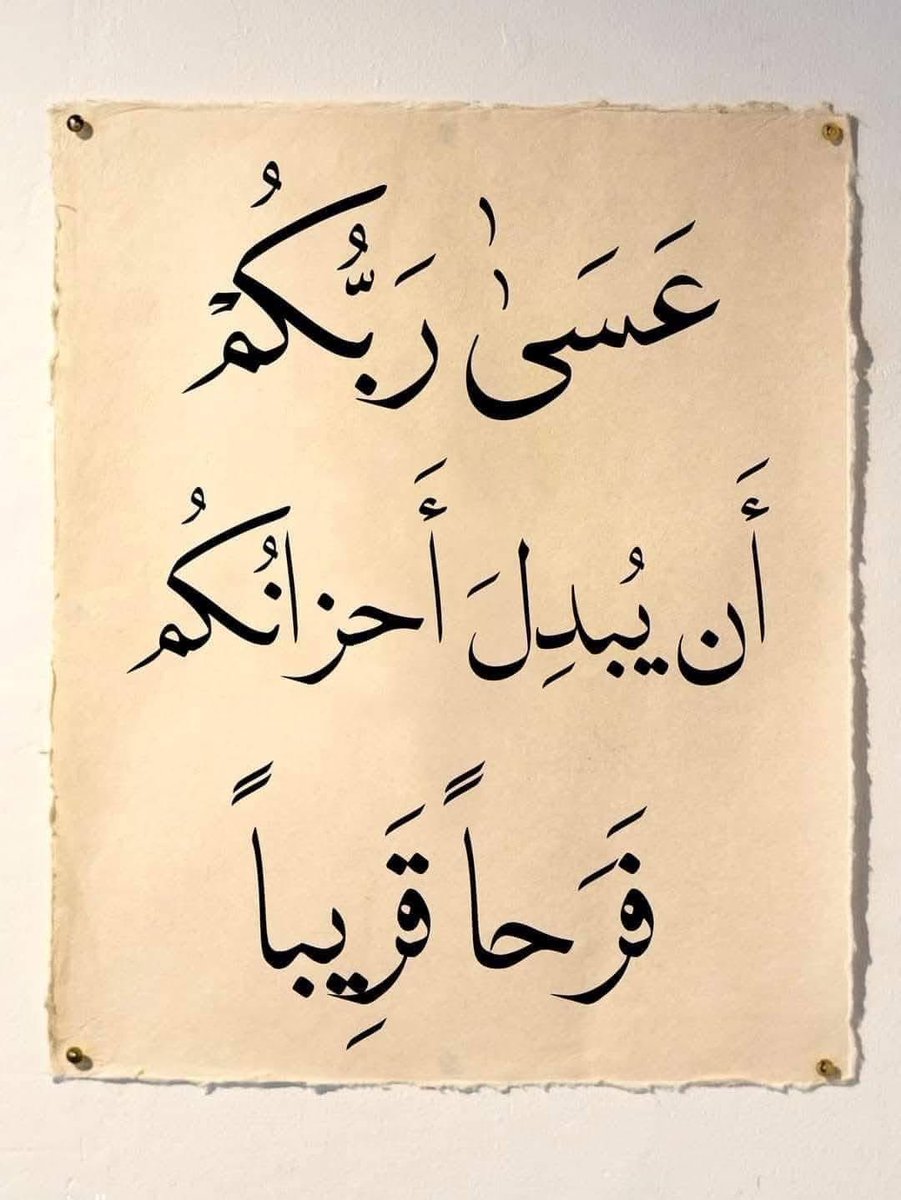 عَسَىٰ رَبُّكُمْ
أَن يُبدِلَ أَحزانُكُم
فَرَحاً قَرِيباً